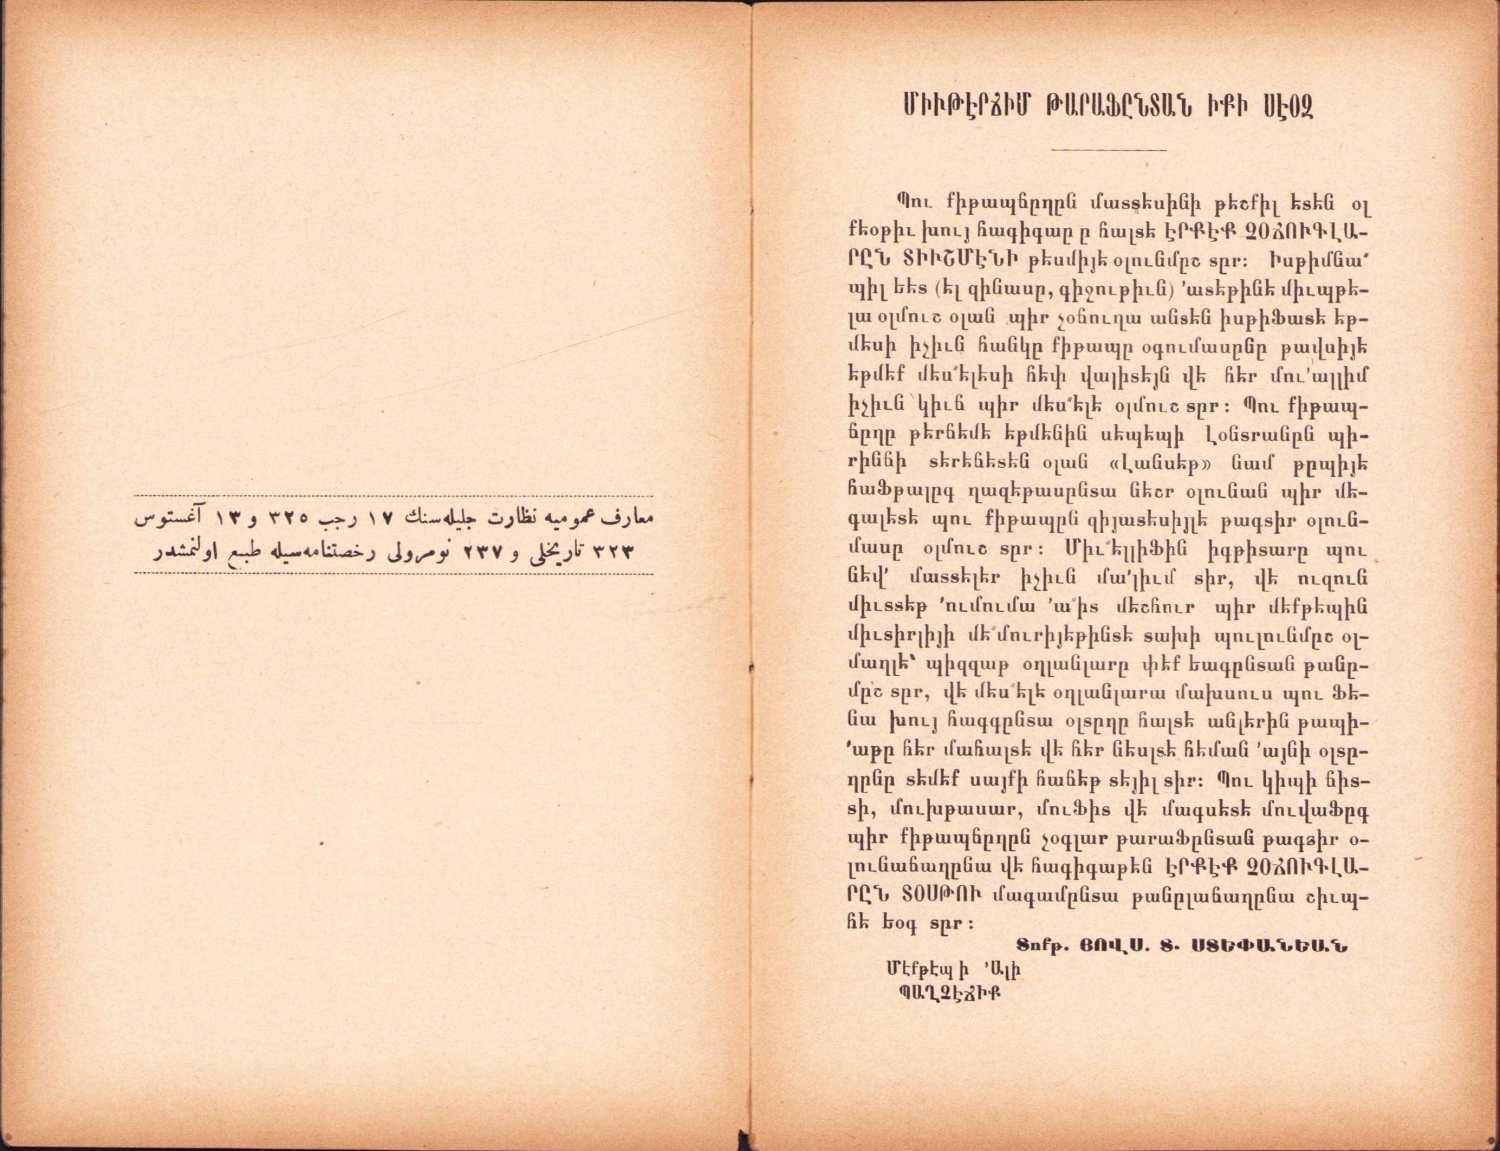 معارف عموميه نظارت جليله‌سنك ١٧ رجب ٣٢٥ و ١٣ آغستوس
٣٢٣ تاريخلى و ٢٣٧ نومرولى رخصتنامه‌سيله طبع اولنمشدر
ՄԻՒԹԷՐՃԻՄ ԹԱՐԱՖԸՆՏԱՆ ԻՔԻ ՍԷՕԶ
Պու քիթապճըղըն մատտեսինի թեշքիլ ետեն օլ
քեօթիւ խույ հագիգար ը հալտե ԷՐՔԷՔ ՉՕՃՈՒԳԼԱ-
ՐԸՆ ՏԻՒՇՄԷՆԻ թեսմիյե օլունմըշ տըր։ Իսթիմնա՟
պիլ եետ (էլ զինասը, գիջութիւն) ՚ատեթինե միւպթե-
լա օլմուշ օլան պիր չօճուղա անտեն իսթիֆատե եթ-
մեսի իչիւն հանկը քիթապը օգումասընը թավսիյե
եթմեք մես՟ելեսի հեփ վալիտեյն վե հեր մու՚ալլիմ
իչիւն կիւճ պիր մես՟ելե օլմուշ տըր։ Պու քիթապ-
ճըղը թերճեմե եթմենին սեպեպի Լօնտրանըն պի-
րինճի տերեճետեն օլան «Լանսեթ» նամ թըպիյե
հաֆթալըգ ղազեթասընտա նեշր օլունան պիր մե-
գալետե պու քիթապըն զիյատեսիյլե թագտիր օլուն-
մասը օլմուշ տըր։ Միւ՟ելլիֆին իգթիտարը պու
նեվ՚ մատտելեր իչիւն մա՚լիւմ տիր, վե ուզուն
միւտտեթ ՚ումումա ՚ա՟իտ մեշհուր պիր մեքթեպին
միւտիրլիյի մե՟մուրիյեթինտե տախի պուլունմըշ օլ-
մաղլե՝ պիզզաթ օղլանլարը փեք եագընտան թանը-
մըշ տըր, վե մես՟ելե օղլանլարա մախսուս պու ֆե-
նա խույ հագգընտա օլտըղը հալտե անլերին թապի-
՚աթը հեր մահալտե վե հեր նեսլտե հեման ՚այնի օլտը-
ղընը տեմեք սայքի հաճեթ տեյիլ տիր։ Պու կիպի ճիտ-
տի, մուխթասար, մուֆիտ վե մագսետե մուվաֆըգ
պիր քիթապճըղըն չօգլար թարաֆընտան թագտիր օ-
լունաճաղընա վե հագիգաթեն ԷՐՔԷՔ ՉՕՃՈՒԳԼԱ-
ՐԸՆ ՏՕՍԹՈՒ մագամընտա թանըլաճաղընա շիւպ-
հե եօգ տըր։
Տոքթ. ՅՈՎՍ. Տ. ՍՏԵՓԱՆԵԱՆ
Մէքթէպ ի ՚Ալի
ՊԱՂՉԷՃԻՔ